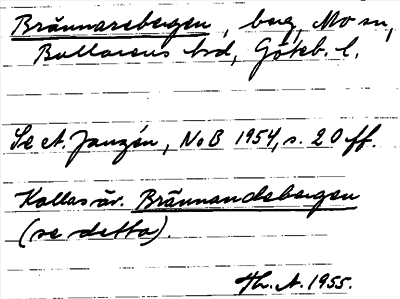 Brännarebergen, berg, Mo sn,
Bullarens hd, Göteb. l.
Se A. Janzén, NoB 1954, s. 20 ff.
Kallas äv. Brännandebergen
(se detta).
Th. A. 1955.